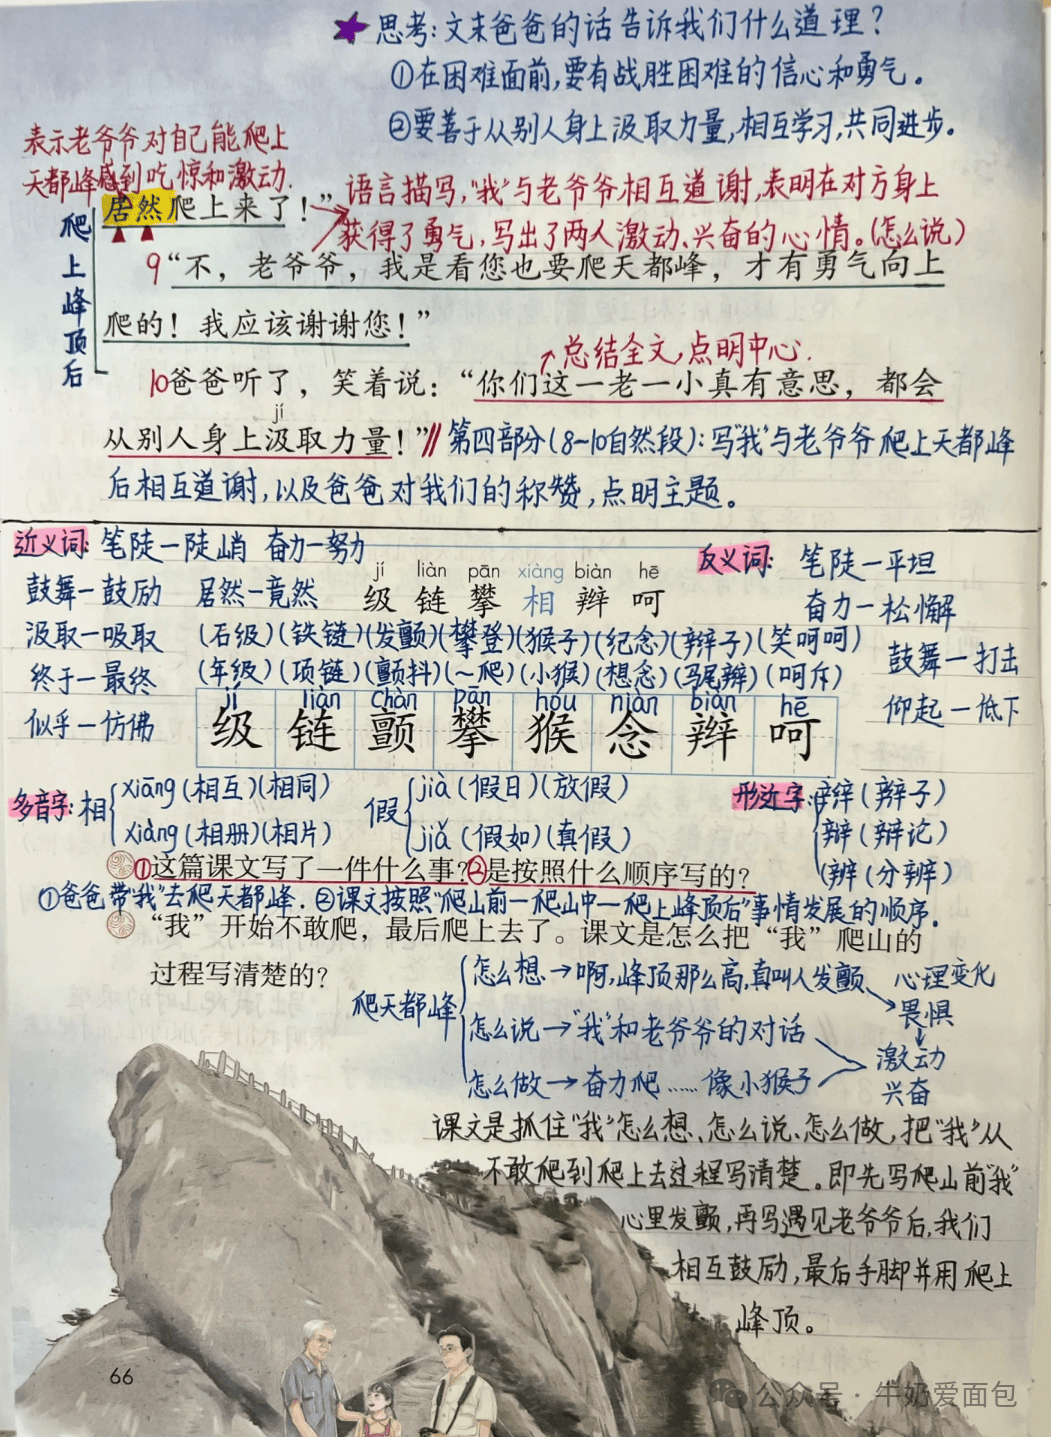 ★思考:文末爸爸的话告诉我们什么道理?
①在困难面前,要有战胜困难的信心和勇气。
②要善于从别人身上汲取力量,相互学习,共同进步。
表示老爷爷对自己能爬上
天都峰感到吃惊和激动.
语言描写,“我”与老爷爷相互道谢,表明在对方身上
获得了勇气,写出了两人激动、兴奋的心情。(怎么说)
爬上峰顶后
居然爬上来了!”
9“不,老爷爷,我是看您也要爬天都峰,才有勇气向上
爬的!我应该谢谢您!”
总结全文,点明中心.
10爸爸听了,笑着说:“你们这一老一小真有意思,都会
jí
从别人身上汲取力量!”∥第四部分(8~10自然段):写“我”与老爷爷爬上天都峰
后相互道谢,以及爸爸对我们的称赞,点明主题。
近义词: 笔陡—陡峭 奋力—努力
鼓舞—鼓励 居然—竟然
汲取—吸取
终于—最终
似乎—仿佛
反义词: 笔陡—平坦
奋力—松懈
鼓舞—打击
仰起—低下
jí liàn pān xiàng biàn hē
级 链 攀 相 辫 呵
(石级)(铁链)(发颤)(攀登)(猴子)(纪念)(辫子)(笑呵呵)
(年级)(项链)(颤抖)(~爬)(小猴)(想念)(马尾辫)(呵斥)
jí liàn chàn pān hóu niàn biàn hē
级 链 颤 攀 猴 念 辫 呵
多音字: 相 xiāng(相互)(相同)
xiàng(相册)(相片)
假 jià(假日)(放假)
jiǎ(假如)(真假)
形近字: 辫(辫子)
辩(辩论)
辨(分辨)
①这篇课文写了一件什么事?②是按照什么顺序写的?
①爸爸带“我”去爬天都峰. ②课文按照“爬山前—爬山中—爬上峰顶后”事情发展的顺序.
“我”开始不敢爬,最后爬上去了。课文是怎么把“我”爬山的
过程写清楚的?
爬天都峰
怎么想→啊,峰顶那么高,真叫人发颤 心理变化
畏惧
怎么说→“我”和老爷爷的对话
激动
怎么做→奋力爬……像小猴子
兴奋
课文是抓住“我”怎么想、怎么说、怎么做,把“我”从
不敢爬到爬上去过程写清楚。即先写爬山前“我”
心里发颤,再写遇见老爷爷后,我们
相互鼓励,最后手脚并用爬上
峰顶。
66
公众号·牛奶爱面包